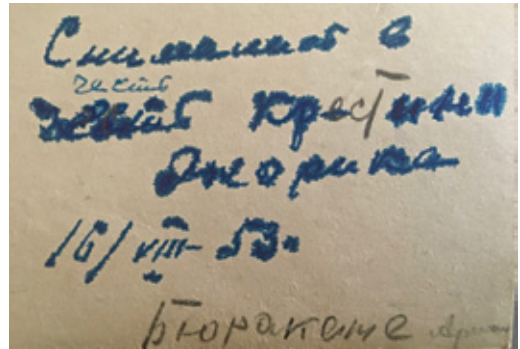 Снимались в
честь
честь крестини
Жорика
16/VIII-53г
Бюракане